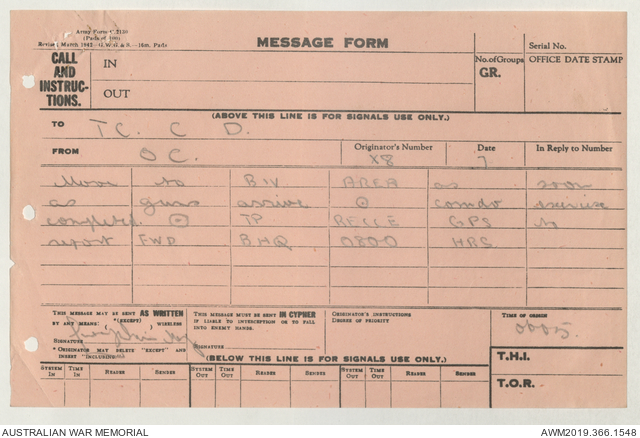 Army Form C.2130
(Pads of 100)
MESSAGE FORM
Serial No.
CALL AND INSTRUC-TIONS.
IN
No. of Groups
GR.
OFFICE DATE STAMP
OUT
(ABOVE THIS LINE IS FOR SIGNALS USE ONLY.)
TO T C. C D.
FROM O C.
Originator's Number X8
Date 7
In Reply to Number
Move to BIV AREA as soon
as guns arrive ⊙ comdo exercise
completed ⊙ TP RECCE GPS to
report FWD BHQ 0800 HRS
THIS MESSAGE MAY BE SENT AS WRITTEN
BY ANY MEANS: (EXCEPT) WIRELESS
SIGNATURE
* ORIGINATOR MAY DELETE "EXCEPT" AND INSERT "INCLUDING"
THIS MESSAGE MUST BE SENT IN CYPHER
IF LIABLE TO INTERCEPTION OR TO FALL INTO ENEMY HANDS.
SIGNATURE
ORIGINATOR'S INSTRUCTIONS
DEGREE OF PRIORITY
TIME OF ORIGIN
0005
(BELOW THIS LINE IS FOR SIGNALS USE ONLY.)
T.H.I.
T.O.R.
SYSTEM IN TIME IN READER SENDER SYSTEM OUT TIME OUT READER SENDER SYSTEM OUT TIME OUT READER SENDER
AUSTRALIAN WAR MEMORIAL
AWM2019.366.1548